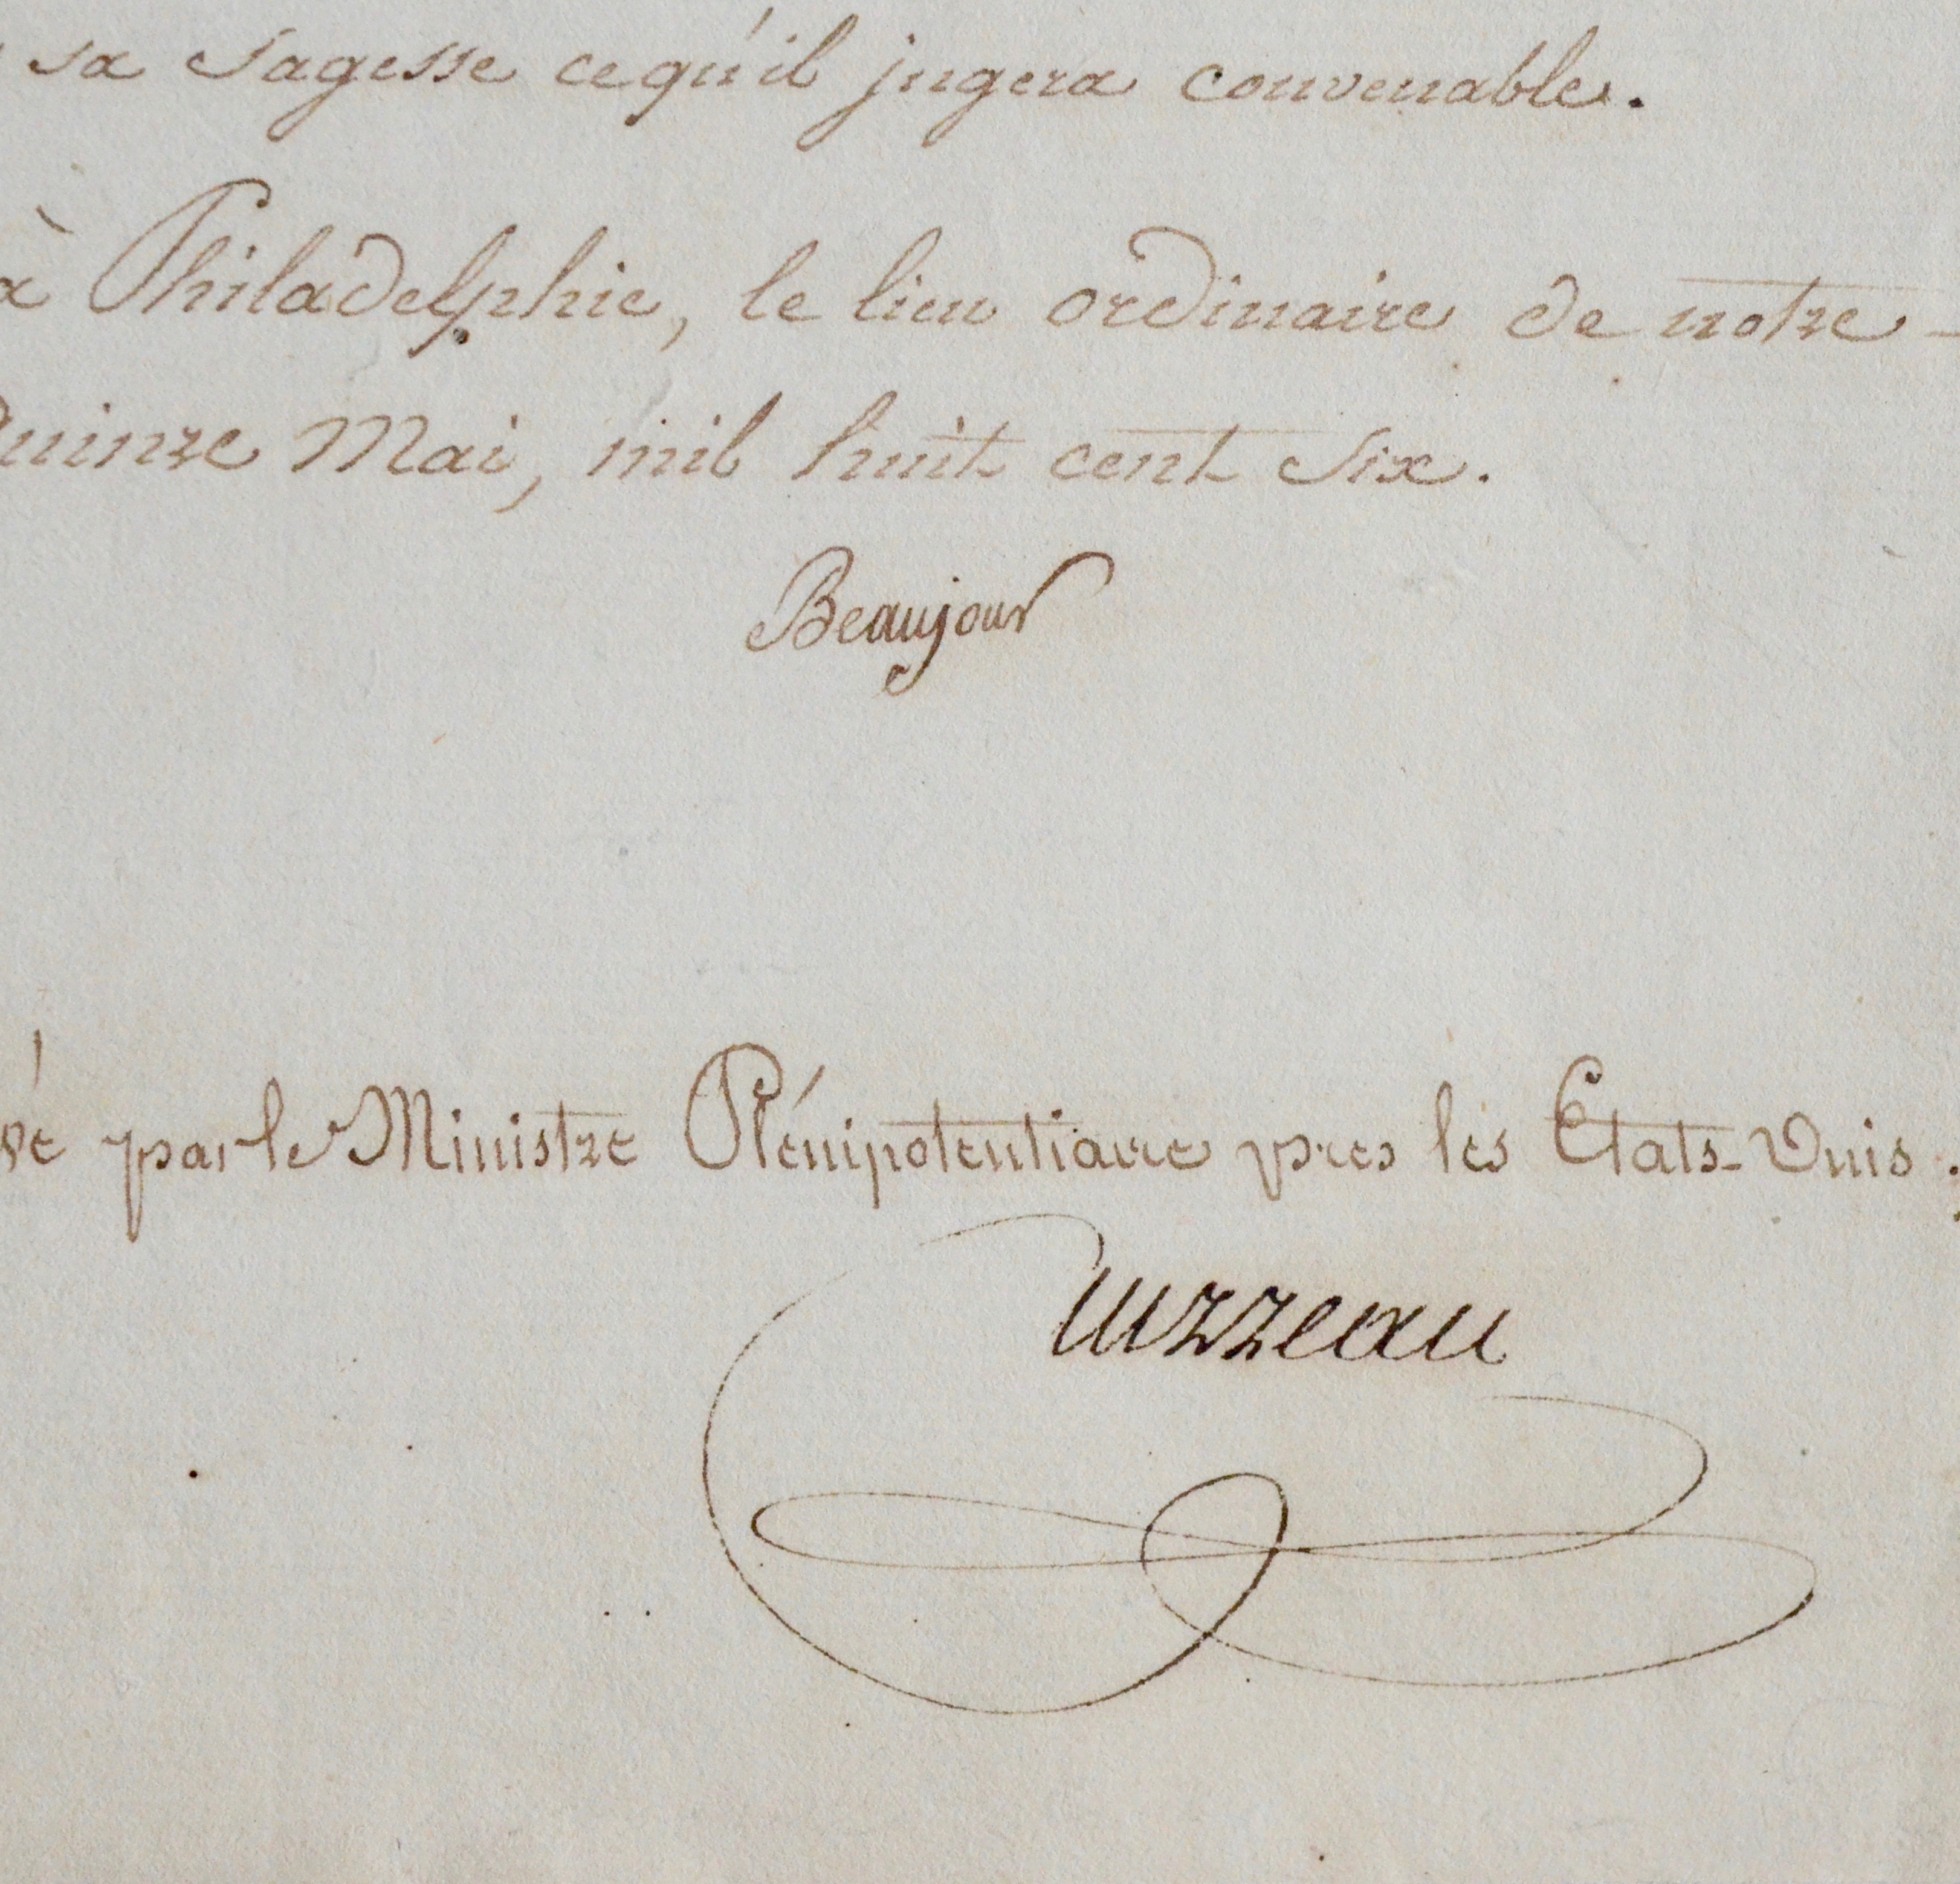 sa sagesse ce qu'il jugera convenable.
à Philadelphie, le lieu ordinaire de notre
Quinze Mai, mil huit cent Six.
Beaujour
vé par le Ministre Plénipotentiaire pres les Etats-Unis.